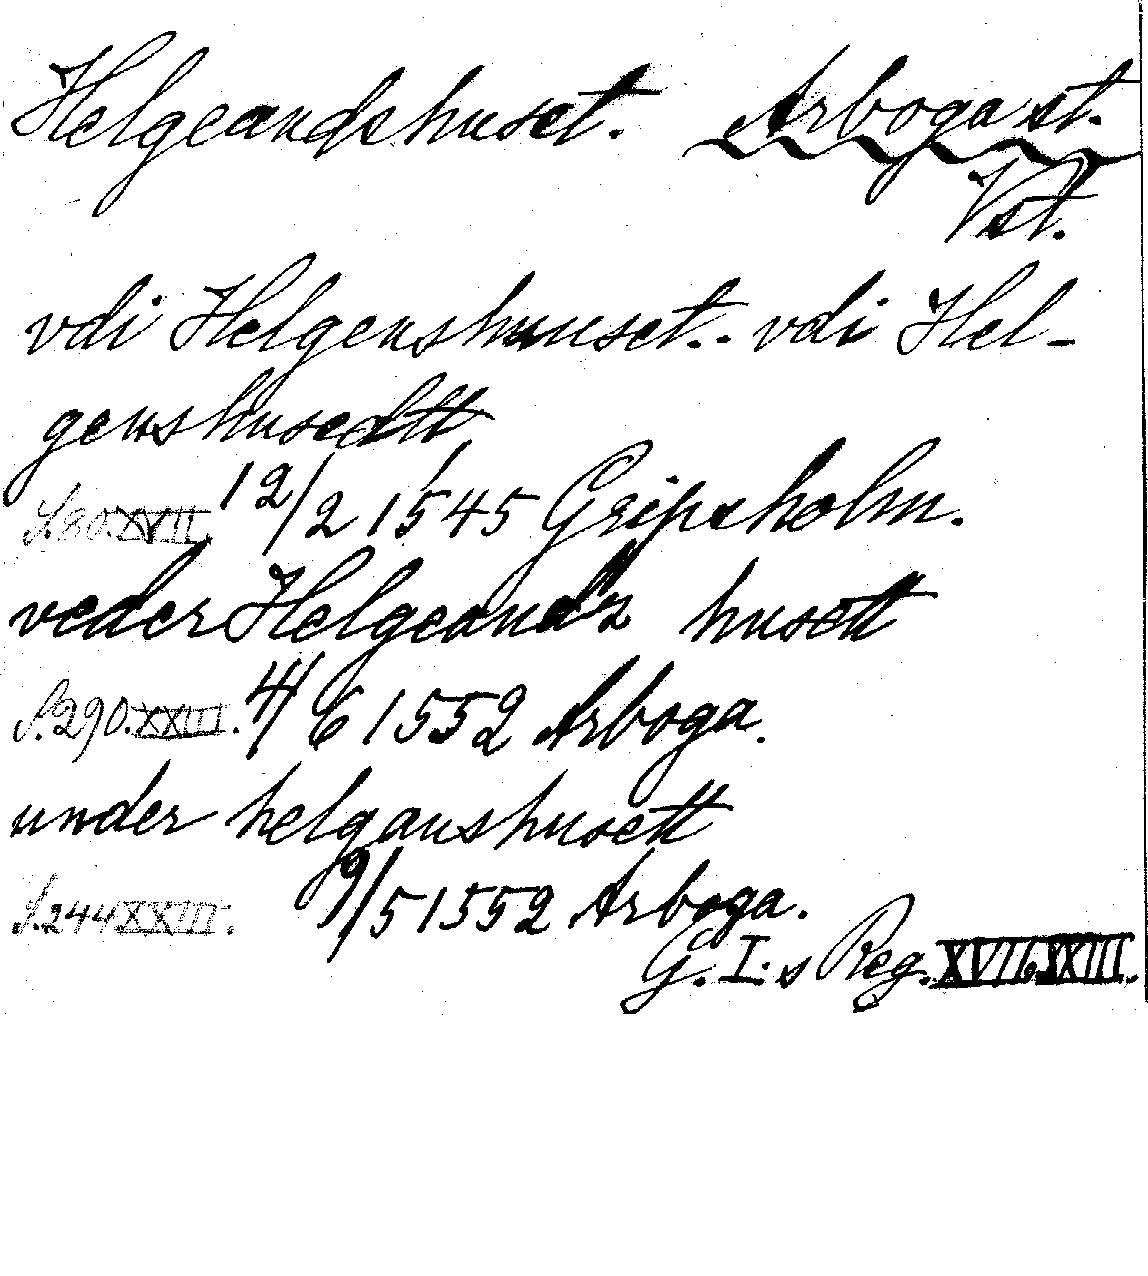 Helgeandshuset. Arboga st.
Vst.
vdi Helgenshuset.. vdi Hel-
genshusedtt
S. 80. XVII. 12/2 1545 Gripsholm.
veder Helgeandz husett
S. 290. XXIII. 4/6 1552 Arboga.
under helganshusett
S. 244 XXIII. 9/5 1552 Arboga.
G. I:s Reg. XVII o XXIII.